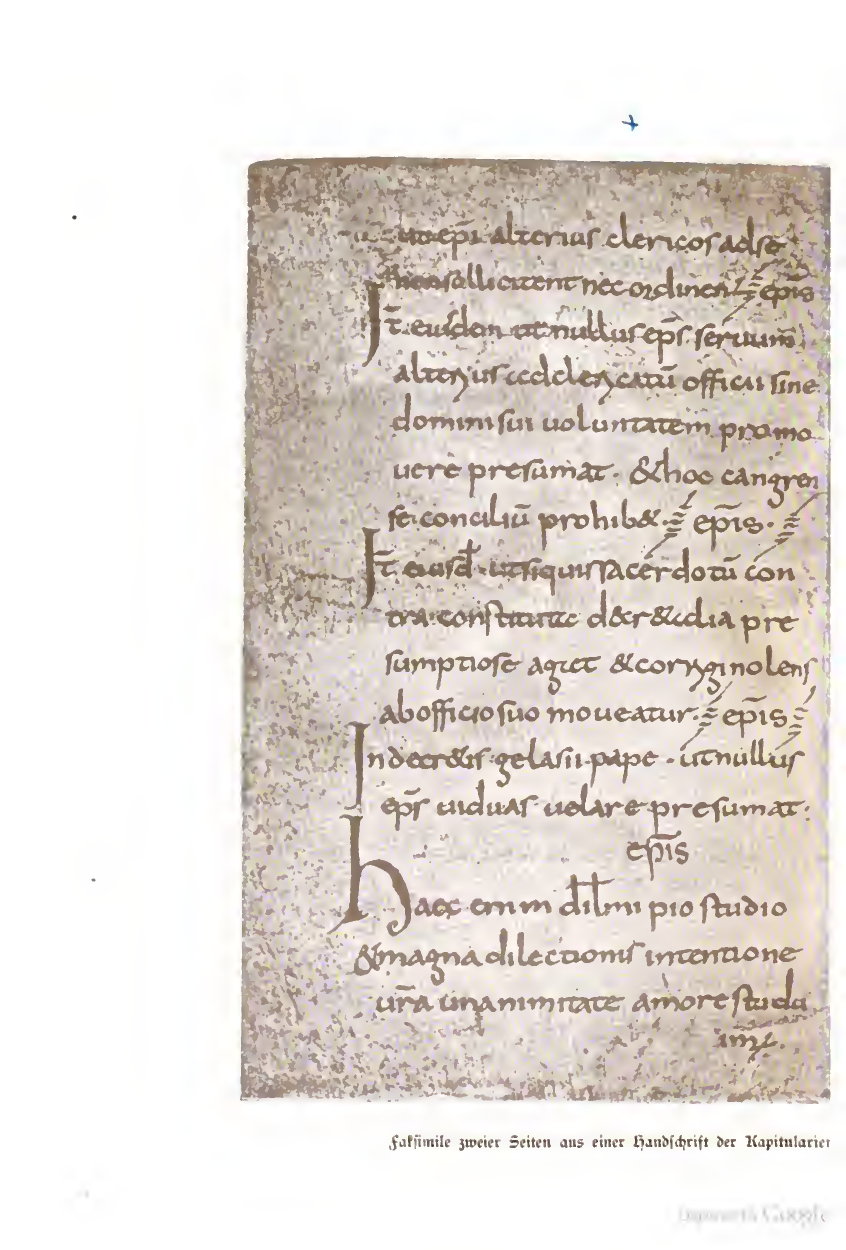 ut ep̄i alterius clericos ad se
non sollicitent nec ordinent ep̄is
Īt eiusdem ut nullus ep̄s seruum
alterius ad clericatū officii sine
domini sui uoluntatem promo
uere presumat · & hoc in gangren
se concilιū prohib& · ep̄is ·
Īt eiusd · ut si quis sacerdotū con
tra constituta decr&alia pre
sumptiose agit & corrigi nolens
ab officio suo moueatur · ep̄is
In decr&is · gelasii · pape · ut nullus
ep̄s uiduas uelare presumat ·
ep̄is
haec enim dil̄mi pio studio
& magna dilectionis intentione
ur̄a unanimitate amore studu
imus.
Faksimile zweier Seiten aus einer Handschrift der Kapitularien
Google